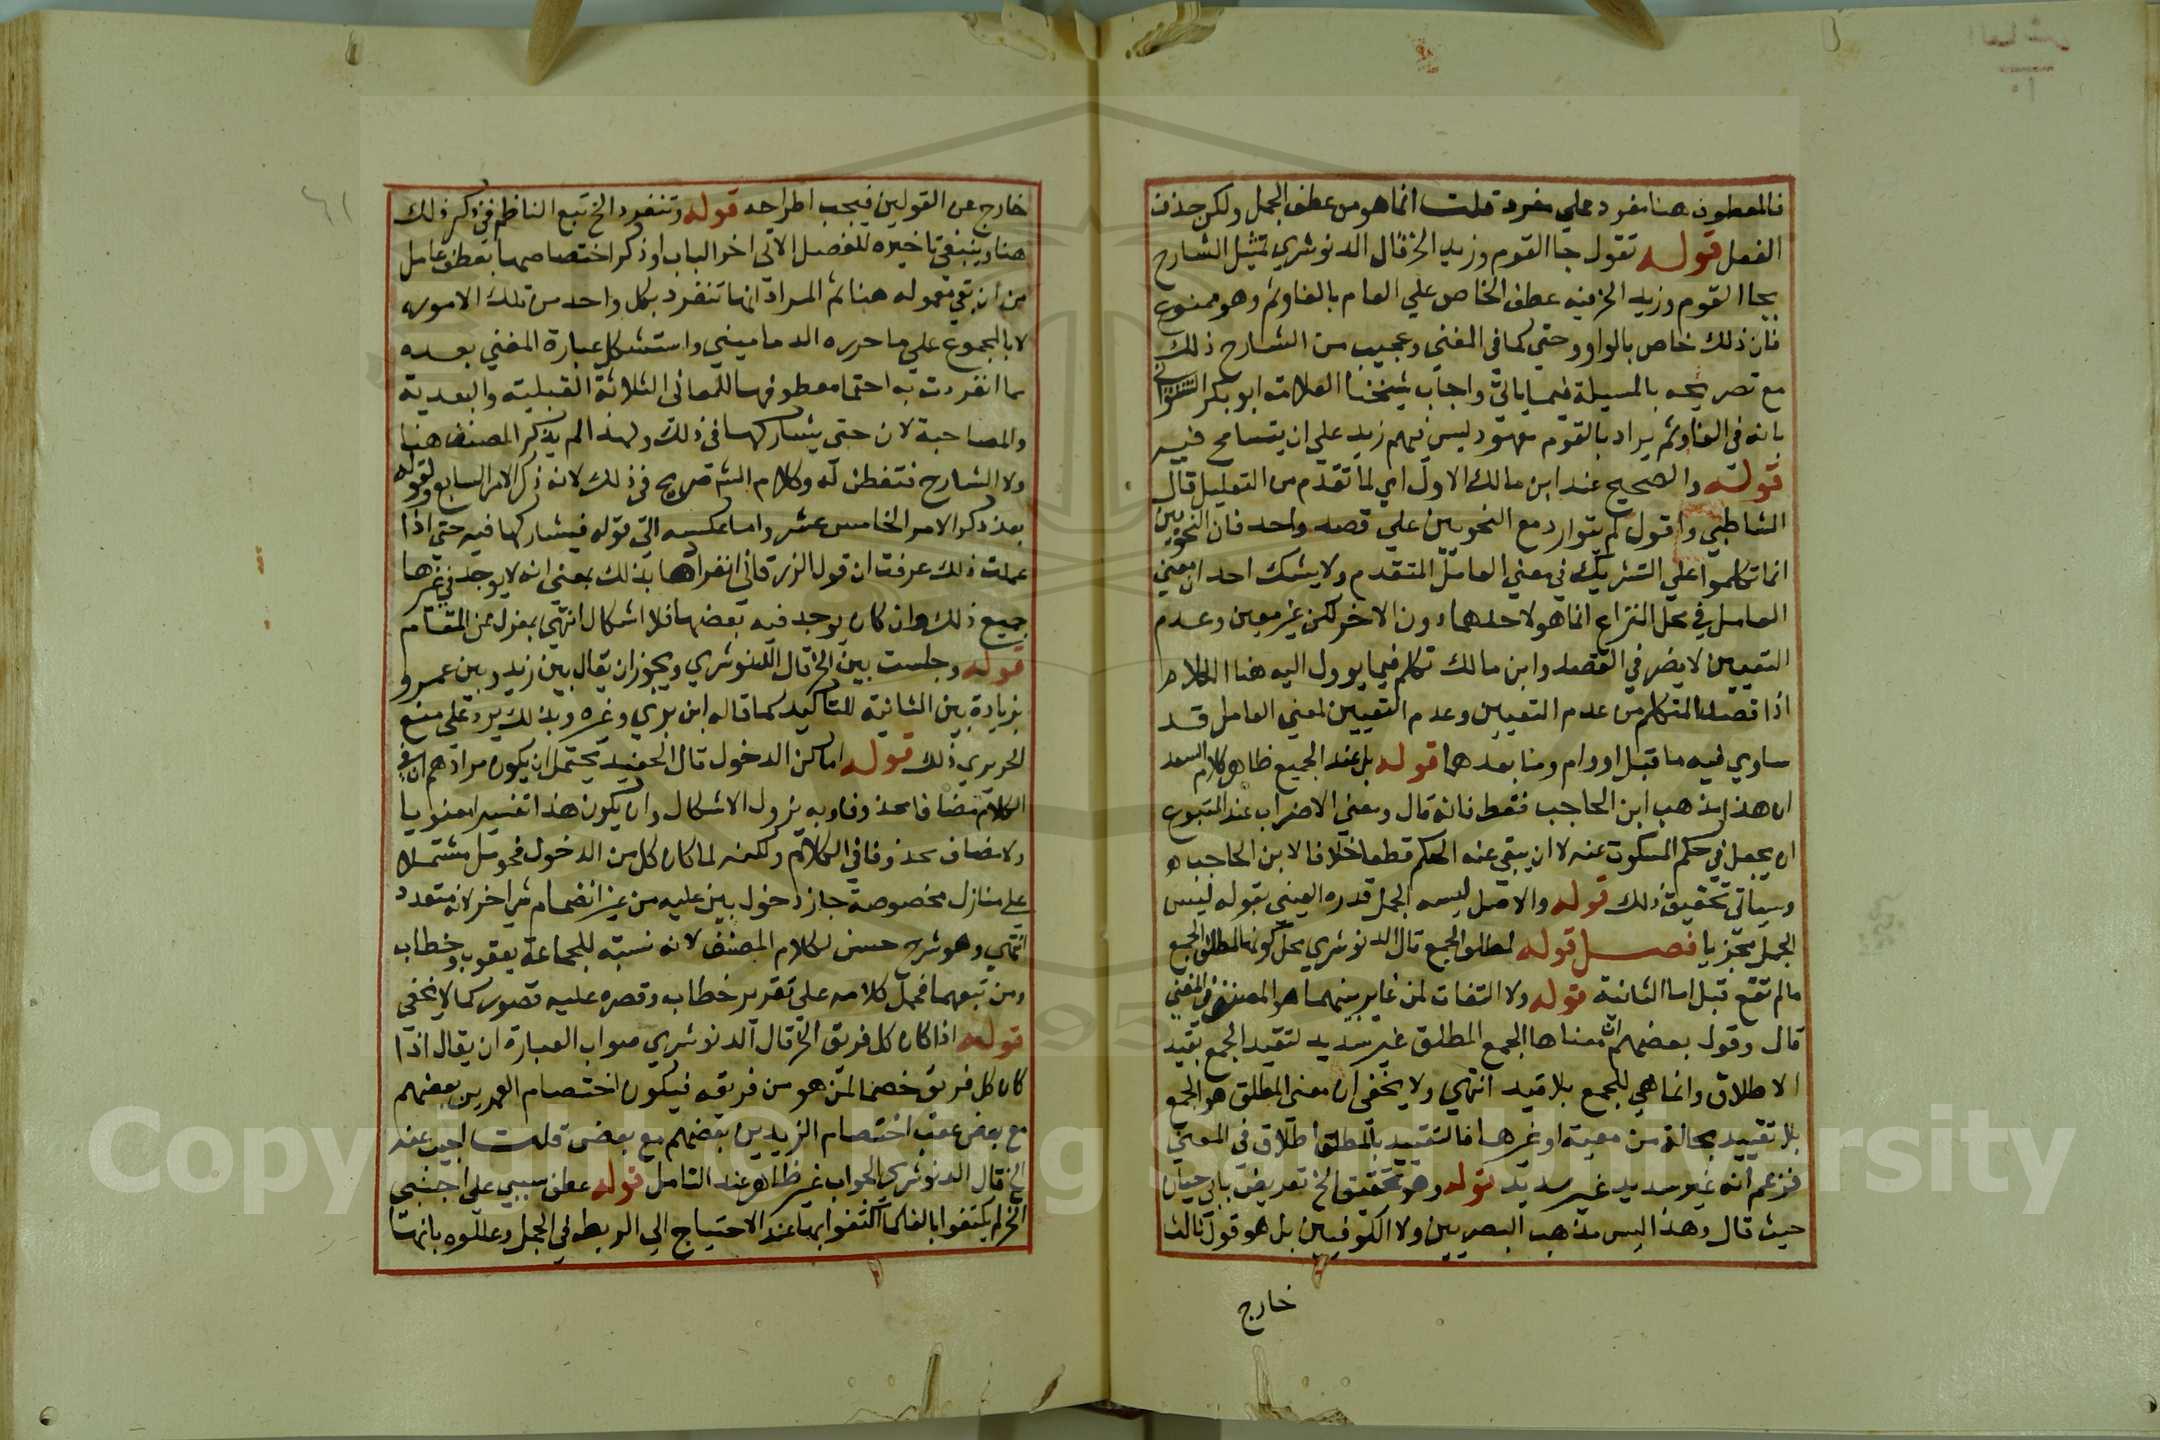 فالمعطوف هنا مفرد على مفرد قلت انما هو من عطف الجمل ولكن حذف
الفعل قوله تقول جا القوم وزيد الخ قال الدنوشري تمثيل الشارح
بجا القوم وزيد الخ فيه عطف الخاص علي العام بالفا وثم وهو ممنوع
فان ذلك خاص بالواو وحتي كما في المغني وعجيب من الشارح ذلك
مع تصريحه بالمسيلة فيما ياتي واجاب شيخنا العلامة ابو بكر الشنواني
بانه في الفا وثم يراد بالقوم معهود ليس فيهم زيد علي ان يتسامح فيه
قوله والصحيح عند ابن مالك الاول اي لما تقدم من التعليل قال
الشاطبي واقول لم يتوارد مع النحويين علي قصد واحد فان النحويين
انما تكلموا علي التشريك في معني العامل المتقدم ولا يشك احد ان معني
العامل في محل النزاع انما هو لاحدهما دون الاخر لكن غير معين وعدم
التعيين لا يضر في القصد وابن مالك تكلم فيما يوول اليه هنا الكلام
اذا قصد المتكلم من عدم التعيين وعدم التعيين لمعني العامل قد
ساوي فيه ما قبل او وام وما بعدهما قوله بل عند الجميع ظاهر كلام السعد
ان هذا مذهب ابن الحاجب فقط فانه قال ومعني الاضراب عند المتبوع
ان يجعل في حكم المسكوت عنه لا ان ينفي عنه الحكم قطعا خلافا لابن الحاجب
وسياتي تحقيق ذلك قوله والاصل ليسه الجمل قدره العيني بقوله ليس
الجمل مجزيا فصل قوله لمطلق الجمع قال الدنوشري محل كونها لمطلق الجمع
ما لم تقع قبل اما الثانية قوله ولا التفات لمن غاير بينهما هو المصنف في المغني
قال وقول بعضهم ان معناها الجمع المطلق غير سديد لتقيد الجمع بقيد
الاطلاق وانما هي للجمع بلا قيد انتهي ولا يخفى ان معنى المطلق هو الجمع
بلا تقييد بحالة من معية او غيرها فالتقييد بالمطلق اطلاق في المعني
فزعم انه غير سديد غير سديد قوله وهو تحقيق الخ تعريض بابي حيان
حيث قال وهذا ليس مذهب البصريين ولا الكوفيين بل هو قول ثالث
خارج
خارج عن القولين فيجب اطراحه قوله وتنفرد الخ تبع الناظم في ذكر ذلك
هنا وينبغي تاخيره للفصل الاتي اخر الباب اذ ذكر اختصاصها بعطف عامل
من ان بقي معموله هنا ثم المراد انها تنفرد بكل واحد من تلك الامور
لا بالمجموع علي ما حرره الدماميني واستشكل عبارة المغني بعده
مما انفردت به احتمال معطوفها للمعاني الثلاثة القبلية والبعدية
والمصاحبة لان حتي يشاركها في ذلك ولهذا لم يذكر المصنف هنا
ولا الشارح فتفطن له وكلام الشم صريح في ذلك لانه ذكر الامر السابع ولقوله
بعد ذكر الامر الخامس عشر واما عكسه الي قوله فيشاركها فيه حتي اذا
عملت ذلك عرفت ان قول الزرقاني انفرادها بذلك بمعني انه لا يوجد في غيرها
جميع ذلك وان كان يوجد فيه بعضها فلا اشكال انتهي بمعزل عن المقام
قوله وجلست بين الخ قال الدنوشري ويجوز ان يقال بين زيد وبين عمرو
بزيادة بين الثانية للتاكيد كما قاله ابن بري وغيره وبذلك يرد علي منع
الحريري ذلك قوله اماكن الدخول قال الحفيد يحتمل ان يكون مرادهم ان في
الكلام مضافا محذوفا وبه يزول الاشكال وان يكون هذا تفسيرا معنويا
ولا مضاف محذوفا في الكلام ولكنه لما كان كل من الدخول فحومل مشتملا
علي منازل مخصوصة جاز دخول بين عليه من غير انضمام شي اخر لانه متعدد
انتهي وهو شرح حسن لكلام المصنف لانه نسبه للجماعة يعقوب وخطاب
ومن تبعهما فحمل كلامه علي تقرير خطاب وقصره عليه قصور كما لا يخفى
قوله اذا كان كل فريق الخ قال الدنوشري صواب العبارة ان يقال اذا
كان كل فريق خصما لمن هو من فريقه فيكون اختصام العمرين بعضهم
مع بعض عقب اختصام الزيدين بعضهم مع بعض قلت اجيب عنه
الخ قال الدنوشري الجواب غير ظاهر عند التامل قوله عطف سببي علي اجنبي
الخ لم يكتفوا بالفا كما اكتفوا بها عند الاحتياج الي الربط في الجمل وعللوه بانها
Copyright © King Saud University